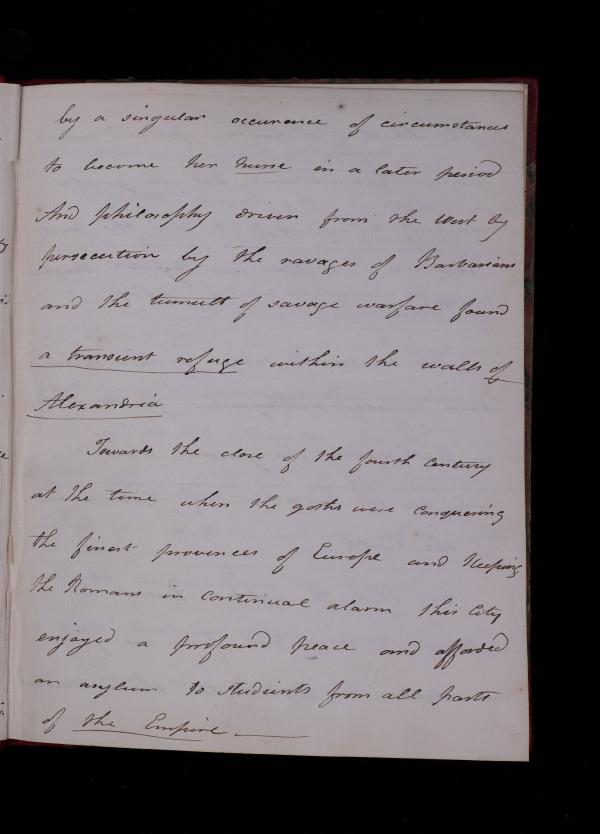 by a singular occurence of circumstances
to become her nurse in a later period
And philosophy driven from the West by
persecution by the ravages of Barbarians
and the tumult of savage warfare found
a transient refuge within the walls of
Alexandria
Towards the close of the fourth Century
at the time when the goths were conquering
the finest provinces of Europe and Keeping
the Romans in continual alarm this City
enjoyed a profound peace and afforded
an asylum to students from all parts
of the Empire.